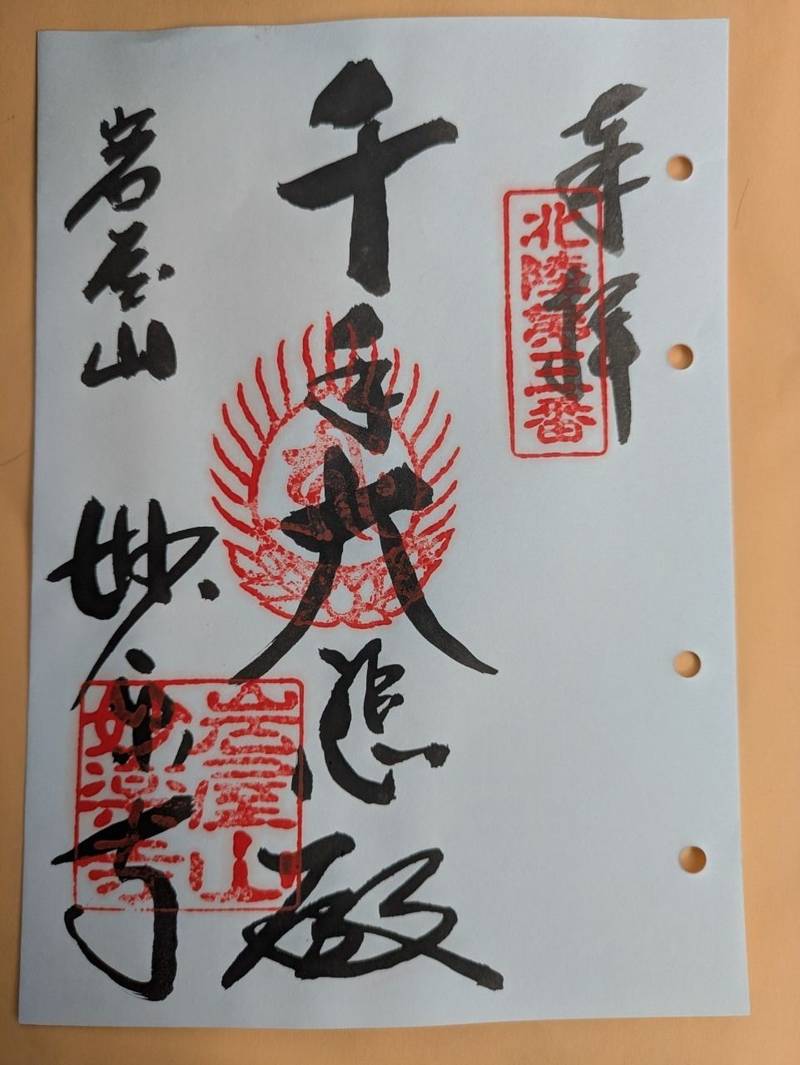 奉拝
北陸第三番
千手大悲殿
岩屋山
妙楽寺
岩屋山
妙楽寺